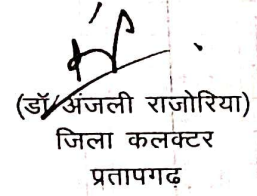 (डॉ अंजली राजोरिया)
जिला कलक्टर
प्रतापगढ़